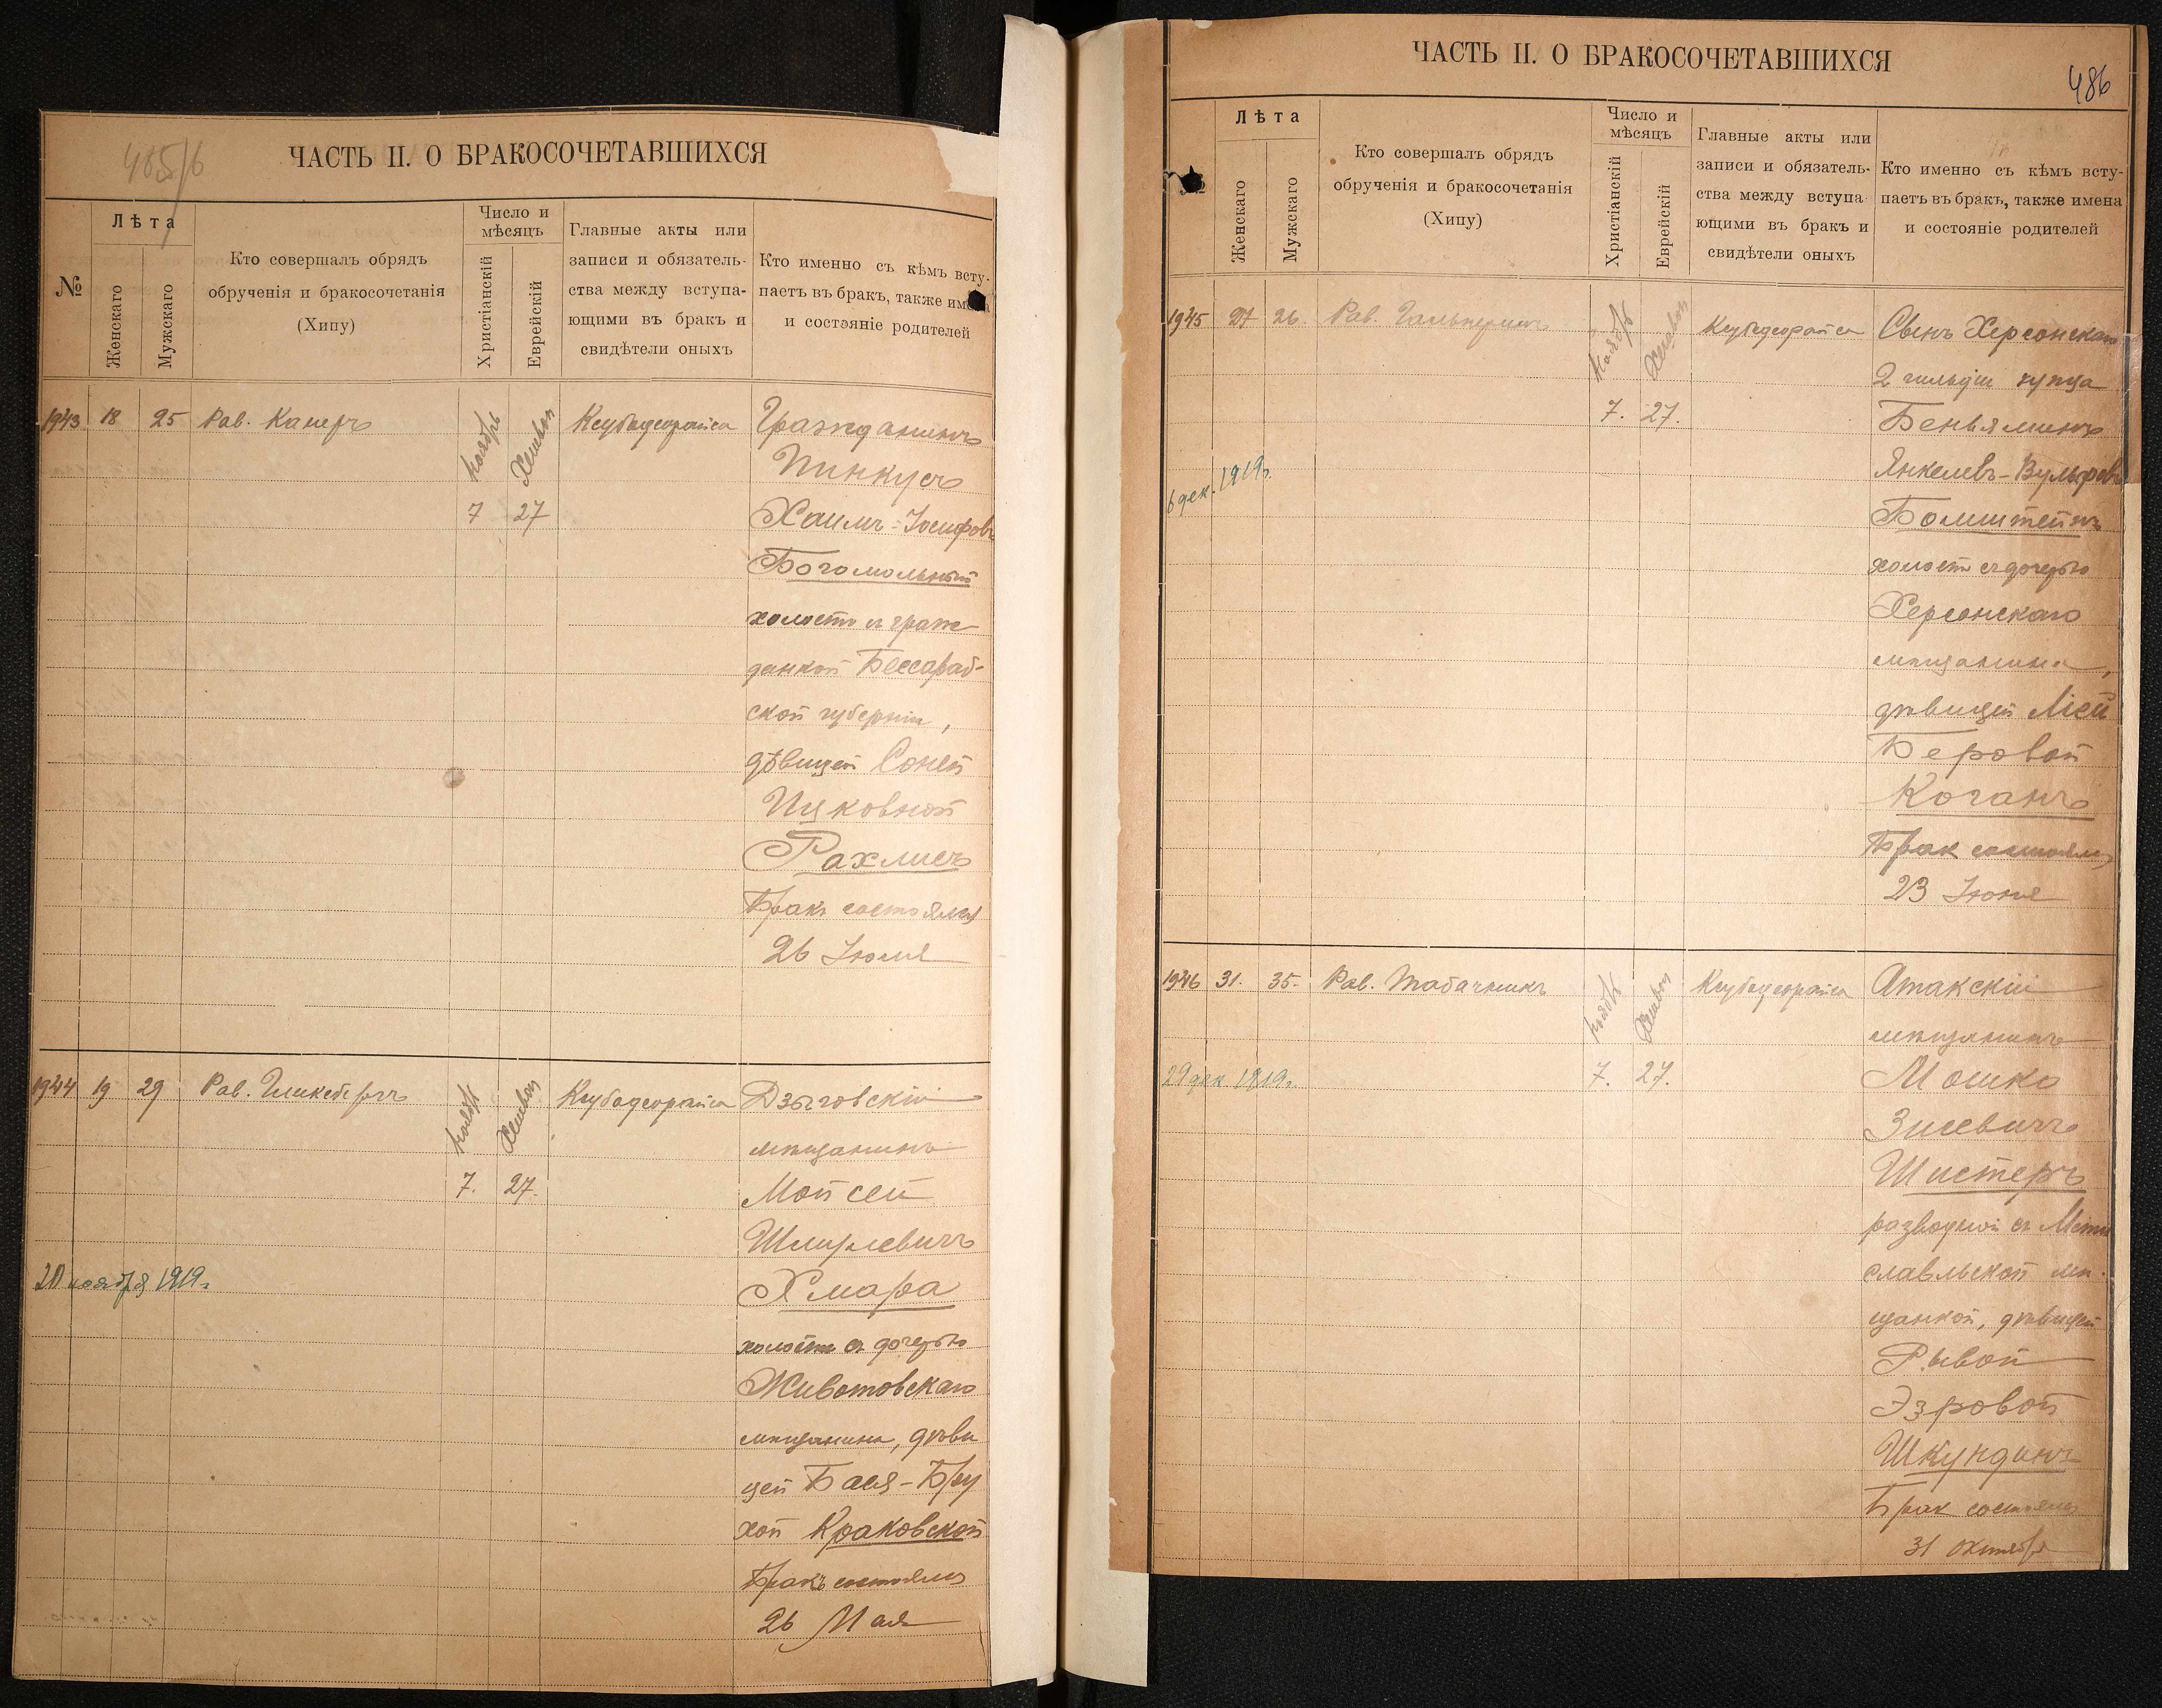 485/6
ЧАСТЬ II. О БРАКОСОЧЕТАВШИХСЯ
№
Лѣта
Женскаго
Мужскаго
Кто совершалъ обрядъ
обрученія и бракосочетанія
(Хипу)
Число и
мѣсяцъ
Христіанскій
Еврейскій
Главные акты или
записи и обязатель-
ства между вступа-
ющими въ бракъ и
свидѣтели оныхъ
Кто именно съ кѣмъ всту-
паетъ въ бракъ, также имена
и состояніе родителей
1943 18 25 Рав. Канеръ
ноябрь Хешвон
7 27
Ксубадеорайса
Гражданинъ
Пинкусъ
Хаимъ-Іосифовъ
Богомольный
холостъ съ граж
данкой Бессараб-
ской губерніи,
дѣвицей Соней
Ицковной
Рахлисъ
Бракъ состоялся
26 Іюля
1944 19 29 Рав. Гликсбергъ
ноябрь Хешвон
7. 27.
Ксубадеорайса
20 ноября 1919г.
Дзыговскій
мѣщанинъ
Мойсей
Шмулевичъ
Хмара
холостъ съ дочерью
Животовскаго
мѣщанина, дѣви
цей Бася-Бру
хой Краковской
Бракъ состоялся
26 Мая
ЧАСТЬ II. О БРАКОСОЧЕТАВШИХСЯ
486
Лѣта
Женскаго
Мужскаго
Кто совершалъ обрядъ
обрученія и бракосочетанія
(Хипу)
Число и
мѣсяцъ
Христіанскій
Еврейскій
Главные акты или
записи и обязатель-
ства между вступа-
ющими въ бракъ и
свидѣтели оныхъ
Кто именно съ кѣмъ всту-
паетъ въ бракъ, также имена
и состояніе родителей
1945 27 26. Рав. Гальперинъ
Ноябрь Хешвон
7. 27.
Ксубадеорайса
6 дек. 1919г.
Сынъ Херсонскаго
2 гильдіи купца
Беньяминъ
Янкелевъ-Вульфовъ
Бомштейнъ
холостъ съ дочерью
Херсонскаго
мѣщанина,
дѣвицей Ліей
Беровой
Коганъ
Брак состоялся
23 Іюня
1946 31. 35- Рав. Табачникъ
ноябрь Хешвон
7. 27.
Ксубадеорайса
29 дек. 1919г.
Атакскій
мѣщанинъ
Мошко
Зисевичъ
Шистеръ
разводный съ Мсти
славльской мѣ-
щанкой, дѣвицей
Рывой
Эзровой
Шкундинъ
Брак состоялся
31 октября